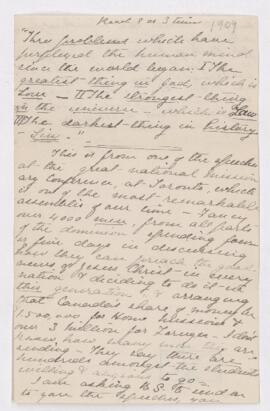 1909
"Three problems which have
perplexed the human mind
since the world began. I The
greatest thing in God, which is
Love — II The strongest thing
in the universe — which is Law
III The darkest thing in history
- Sin."
This is from one of the speeches
at the great national mission
ary Conference, at Toronto, which
is one of the most remarkable
assemblies of our time — Fancy
over 4000 men, from all parts
of the dominion spending four
or five days in discussing
how they can preach the good
news of Jesus Christ in every
nation & deciding to do it in
this generation & arranging
that Canada's share of money be
1,500,000 for Home Missions &
over 3 million for Foreign - I don't
know how many men they are
sending - They say there are
hundreds amongst the students
willing & to go -
I am asking B.S. to send on
to you the speeches, you